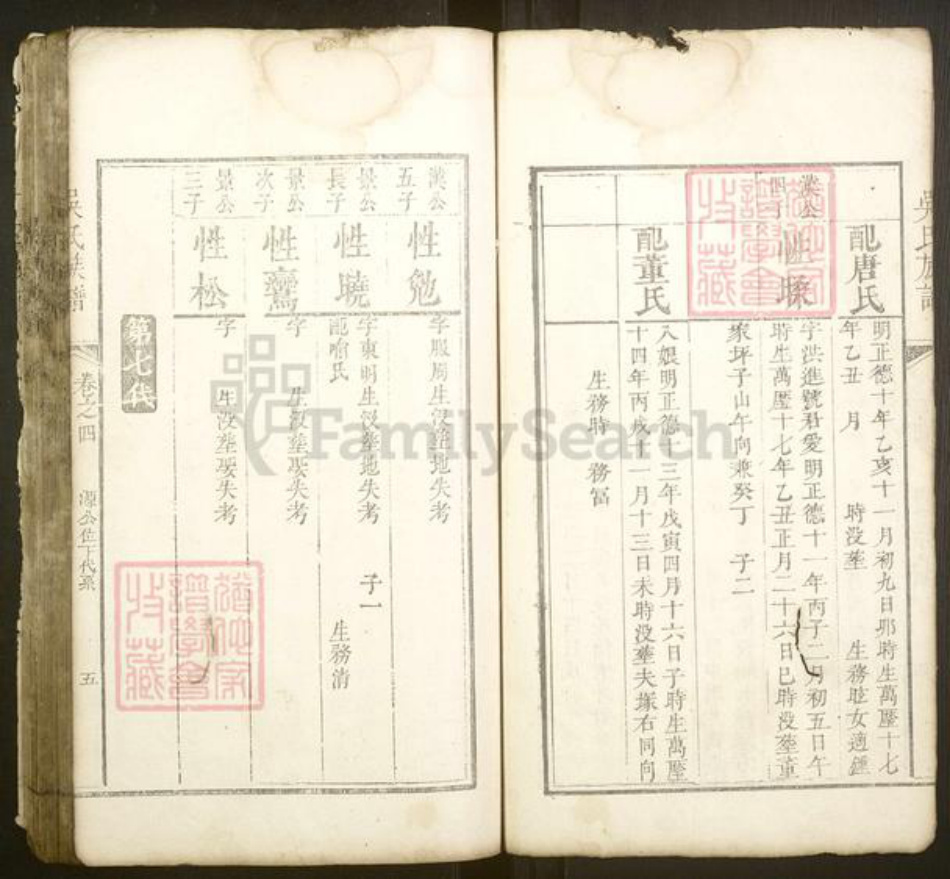 吳氏族譜
配唐氏
明正德十年乙亥十一月初九日卯時生萬曆十七
年乙丑 月 時没塟 生務旺女適鍾
漢公
四子
性
字洪進號君愛明正德十一年丙子二月初五日午
時生萬曆十七年乙丑正月二十六日巳時没塟董
家坪子山午向兼癸丁 子二
配董氏
八娘明正德十三年戊寅四月十六日子時生萬曆
十四年丙戌十一月十三日未時没塟夫塚右同向
生務時 務冨
漢公
五子
性勉
字服周生没塟地失考
景公
長子
性曉
字東明生没塟地失考 子一
配喻氏
生務清
景公
次子
性鸞
字 生没塟娶失考
景公
三子
性松
字 生没塟娶失考
第七代
吳氏族譜
卷之四
源公位下代系
五
譜學會
收藏
FamilySearch